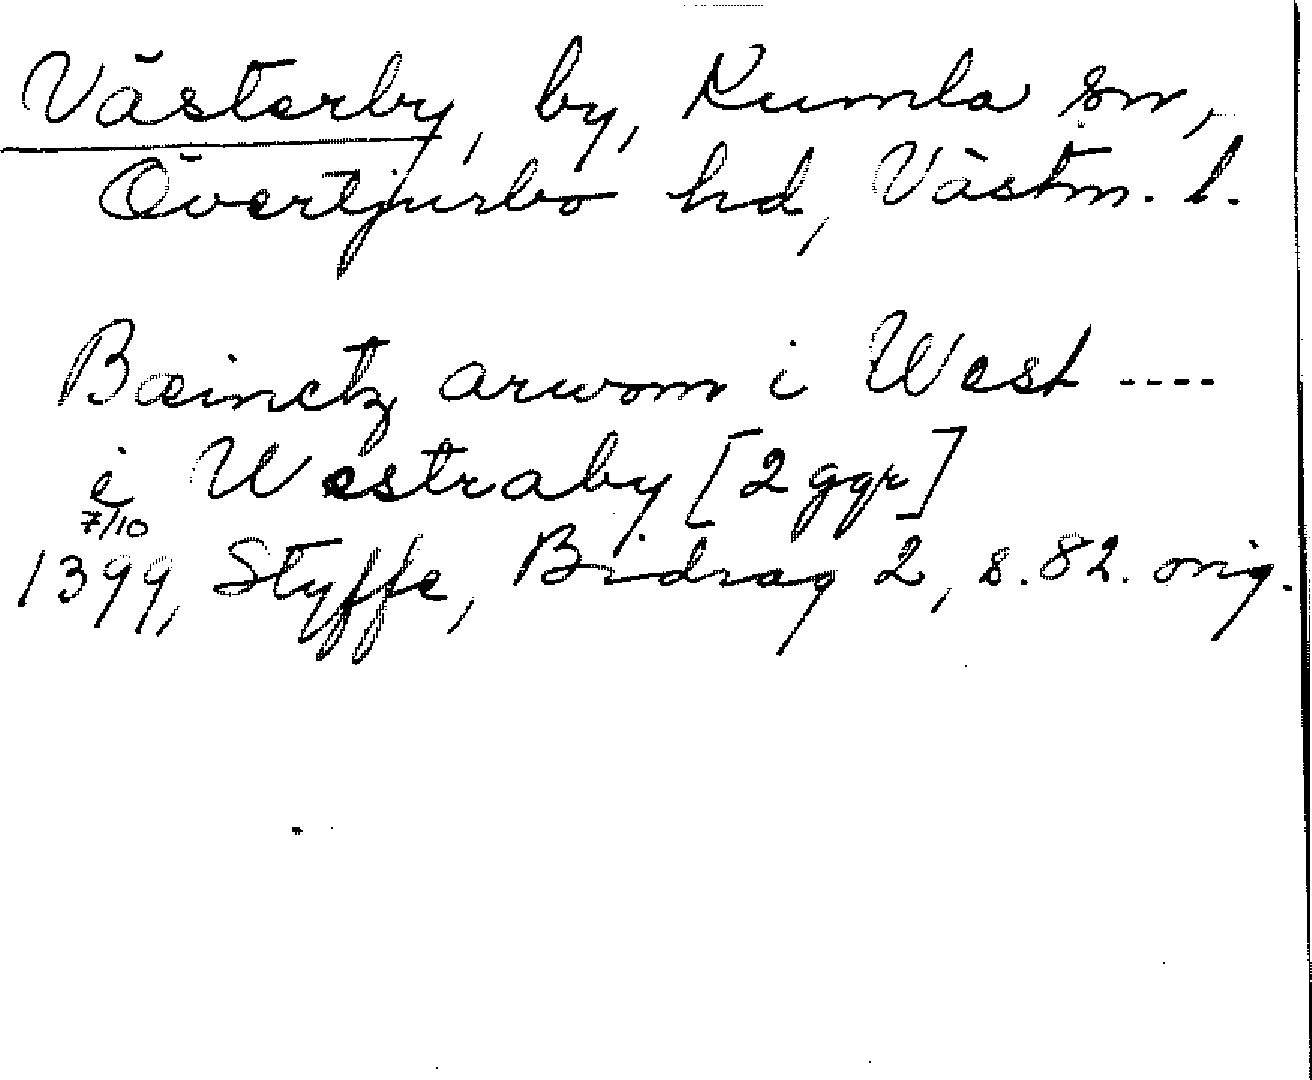 Västerby, by, Kumla sn,
Övertjurbo hd, Västm. l.
Bæinctz arwom i West ----
i Westraby [2 ggr]
7/10
1399, Styffe, Bidrag 2, s. 82. orig.